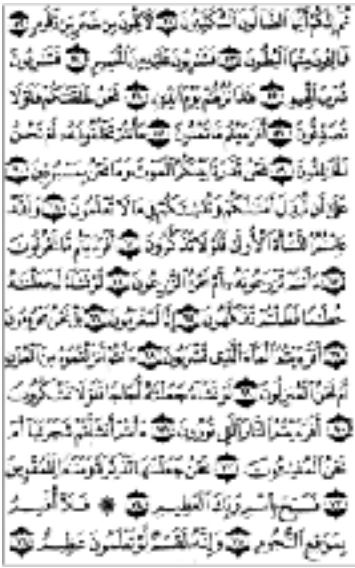 ثُمَّ إِنَّكُمْ أَيُّهَا الضَّالُّونَ الْمُكَذِّبُونَ ۝ لَآكِلُونَ مِن شَجَرٍ مِّن زَقُّومٍ ۝
فَمَالِئُونَ مِنْهَا الْبُطُونَ ۝ فَشَارِبُونَ عَلَيْهِ مِنَ الْحَمِيمِ ۝ فَشَارِبُونَ
شُرْبَ الْهِيمِ ۝ هَٰذَا نُزُلُهُمْ يَوْمَ الدِّينِ ۝ نَحْنُ خَلَقْنَاكُمْ فَلَوْلَا
تُصَدِّقُونَ ۝ أَفَرَأَيْتُم مَّا تُمْنُونَ ۝ أَأَنتُمْ تَخْلُقُونَهُ أَمْ نَحْنُ
الْخَالِقُونَ ۝ نَحْنُ قَدَّرْنَا بَيْنَكُمُ الْمَوْتَ وَمَا نَحْنُ بِمَسْبُوقِينَ ۝
عَلَىٰ أَن نُّبَدِّلَ أَمْثَالَكُمْ وَنُنشِئَكُمْ فِي مَا لَا تَعْلَمُونَ ۝ وَلَقَدْ
عَلِمْتُمُ النَّشْأَةَ الْأُولَىٰ فَلَوْلَا تَذَكَّرُونَ ۝ أَفَرَأَيْتُم مَّا تَحْرُثُونَ
۝ أَأَنتُمْ تَزْرَعُونَهُ أَمْ نَحْنُ الزَّارِعُونَ ۝ لَوْ نَشَاءُ لَجَعَلْنَاهُ
حُطَامًا فَظَلْتُمْ تَفَكَّهُونَ ۝ إِنَّا لَمُغْرَمُونَ ۝ بَلْ نَحْنُ مَحْرُومُونَ
۝ أَفَرَأَيْتُمُ الْمَاءَ الَّذِي تَشْرَبُونَ ۝ أَأَنتُمْ أَنزَلْتُمُوهُ مِنَ الْمُزْنِ
أَمْ نَحْنُ الْمُنزِلُونَ ۝ لَوْ نَشَاءُ جَعَلْنَاهُ أُجَاجًا فَلَوْلَا تَشْكُرُونَ
۝ أَفَرَأَيْتُمُ النَّارَ الَّتِي تُورُونَ ۝ أَأَنتُمْ أَنشَأْتُمْ شَجَرَتَهَا أَمْ
نَحْنُ الْمُنشِئُونَ ۝ نَحْنُ جَعَلْنَاهَا تَذْكِرَةً وَمَتَاعًا لِّلْمُقْوِينَ
۝ فَسَبِّحْ بِاسْمِ رَبِّكَ الْعَظِيمِ ۝ ۞ فَلَا أُقْسِمُ
بِمَوَاقِعِ النُّجُومِ ۝ وَإِنَّهُ لَقَسَمٌ لَّوْ تَعْلَمُونَ عَظِيمٌ ۝